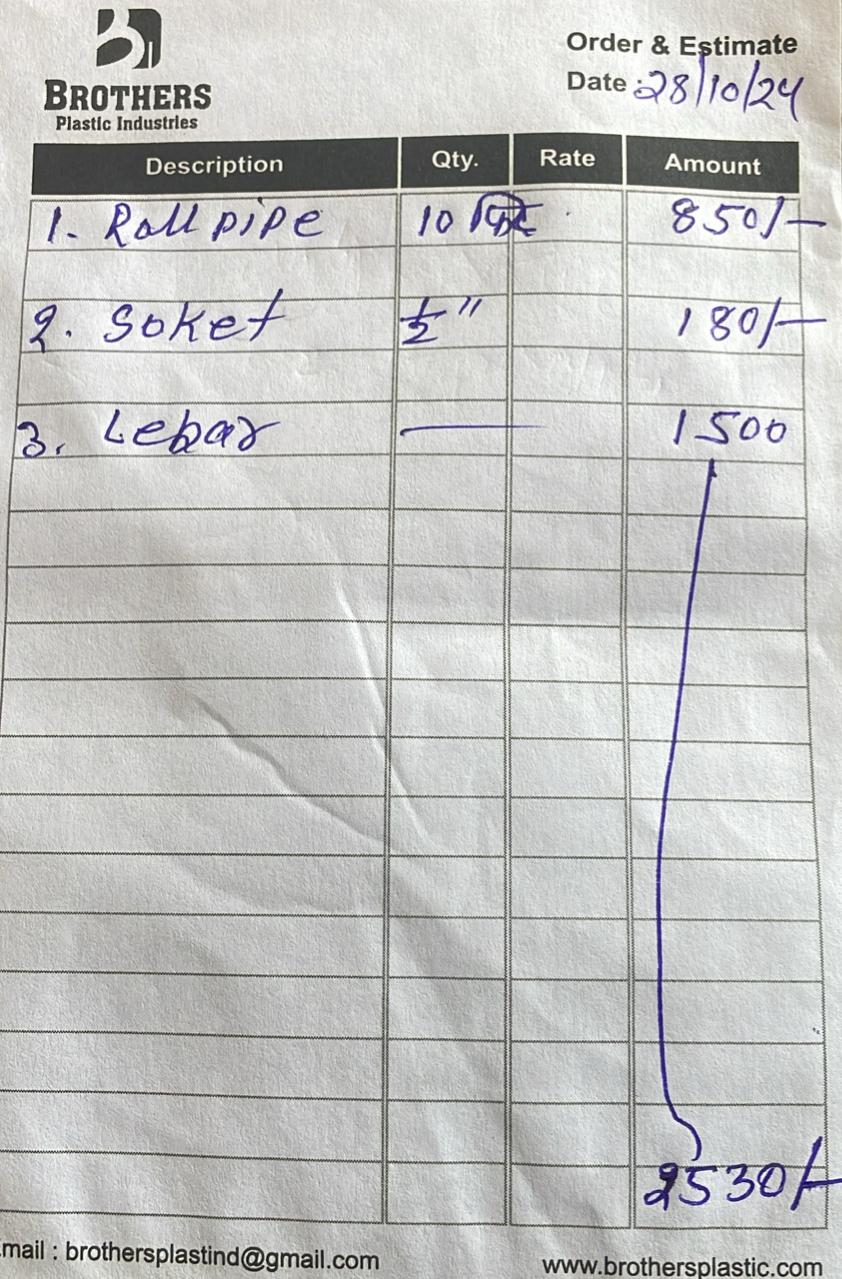 BROTHERS
Plastic Industries
Order & Estimate
Date : 28/10/24
Description Qty. Rate Amount
1. Roll pipe 10 850/-
2. Soket ½" 180/-
3. Lebar — 1500
2530/-
mail : brothersplastind@gmail.com www.brothersplastic.com